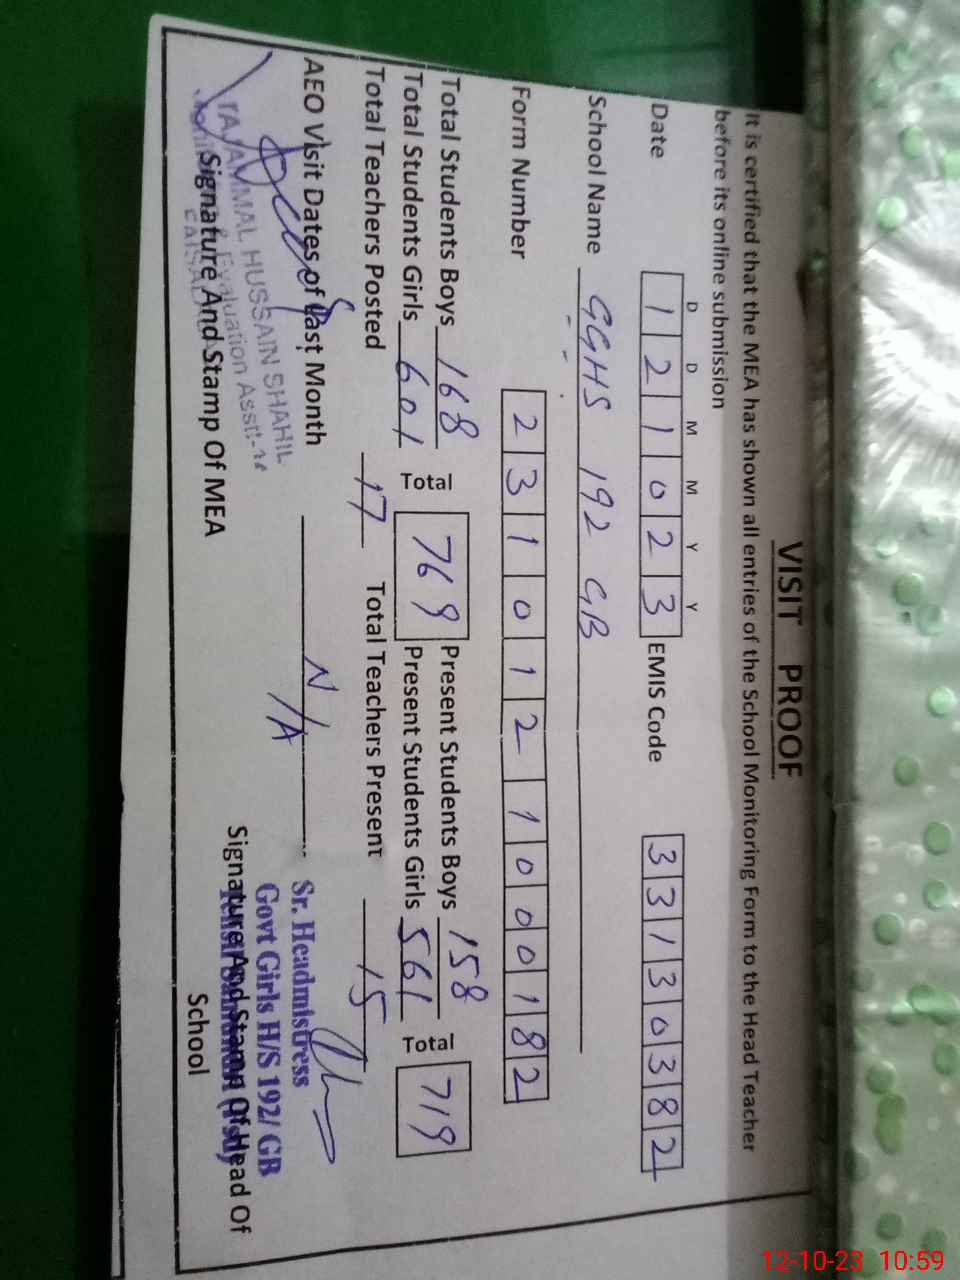 VISIT PROOF
It is certified that the MEA has shown all entries of the School Monitoring Form to the Head Teacher
before its online submission
D D M M Y Y
Date 1 2 1 0 2 3 EMIS Code 3 3 1 3 0 3 8 2
School Name GGHS 192 GB
Form Number 2 3 1 0 1 2 1 0 0 0 1 8 2
Total Students Boys 168 Total 769 Present Students Boys 158 Total 719
Total Students Girls 601 Present Students Girls 561
Total Teachers Posted 17 Total Teachers Present 15
AEO Visit Dates of Last Month N/A
TAJAMMAL HUSSAIN SHAHIL
& Evaluation Asstt:-
Signature And Stamp Of MEA
Sr. Headmistress
Govt Girls H/S 192/ GB
Signature And Stamp Of Head Of
School
12-10-23 10:59